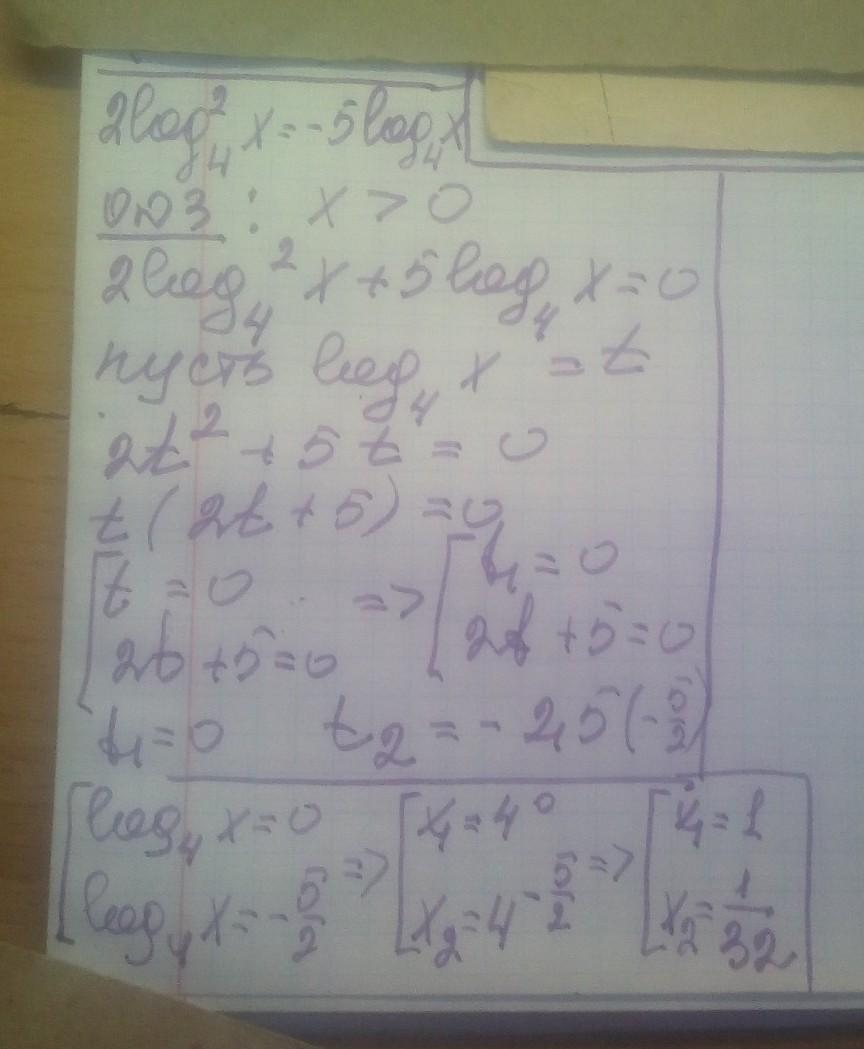 2log₄² x = -5log₄x
ОДЗ : x > 0
2log₄² x + 5log₄ x = 0
пусть log₄ x = t
2t² + 5t = 0
t(2t + 5) = 0
[t = 0 => [t₁ = 0
2t + 5 = 0 2t + 5 = 0
t₁ = 0 t₂ = -2,5 (-5/2)
[log₄ x = 0 => [x₁ = 4⁰ => [x₁ = 1
log₄ x = -5/2 x₂ = 4^(-5/2) x₂ = 1/32